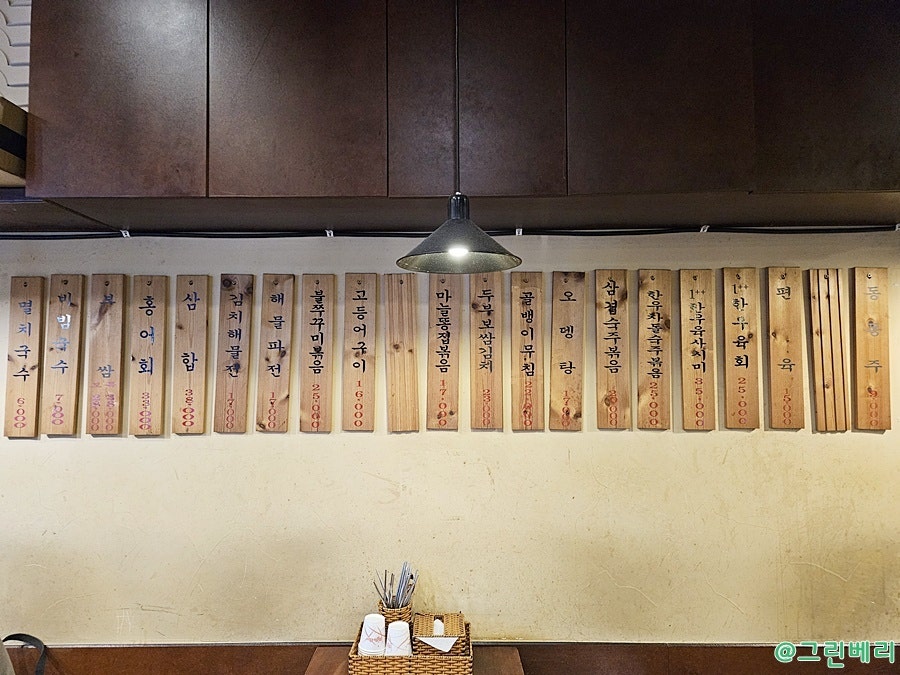 멸치국수 6.000
비빔국수 7.000
보쌈
홍어회 33.000
삼합 38.000
김치해물전 17.000
해물파전 17.000
불쭈꾸미볶음 25.000
고등어구이 16.000
마늘똥집볶음 17.000
두부보쌈김치 23.000
골뱅이무침 22.000
오뎅탕 17.000
삼겹숙주볶음
한우차돌숙주볶음 25.000
1++한우육사시미 35.000
1++한우육회 25.000
편육 15.000
동동주 9.000
@그린베리